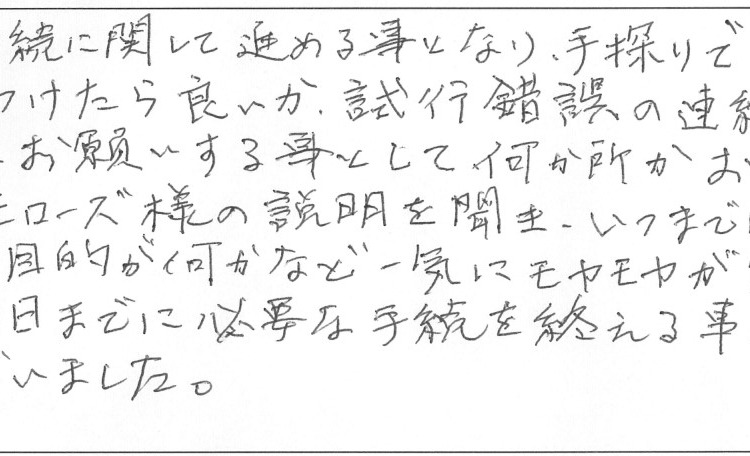 続に関して進める事となり、手探りで
つけたら良いか、試行錯誤の連続
お願いする事として何か所かお
ローズ様の説明を聞き、いつまでに
目的が何かなど一気にモヤモヤが
日までに必要な手続を終える事
いました。